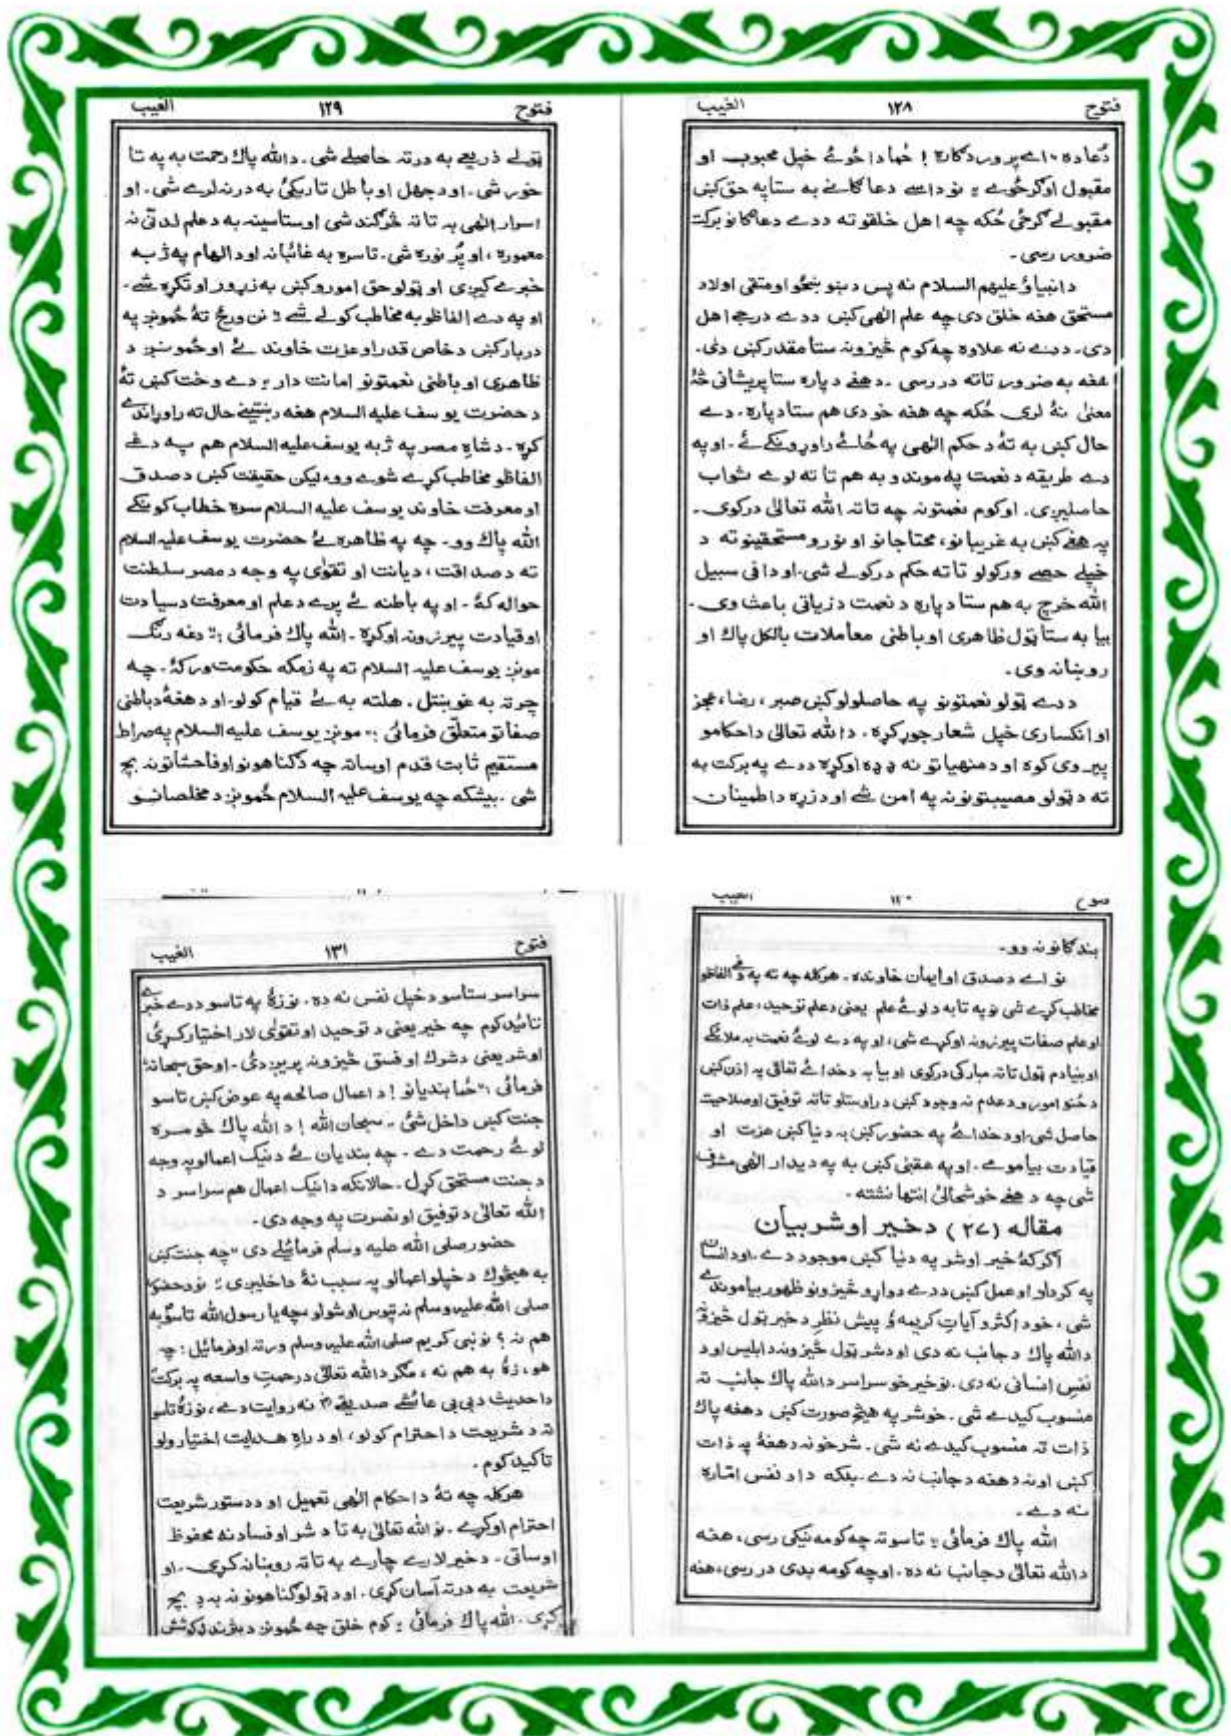 فتوح ١٢٨ الغيب
دُعا ده. اے پروردګاره! ځما دا ځوئے خپل محبوب او
مقبول اوګرځوے؛ نو داسے دعا ګانے به ستا په حق کښ
مقبولے ګرځی ځکه چه اهل خلقو ته ددے دعا ګانو برکت
ضرور رسی۔
دانبیاؤ علیهم السلام نه پس د ښو ښځو او متقی اولاد
مستحق هغه خلق دی چه علم الٰهی کښ ددے درجے اهل
دی۔ ددے نه علاوه چه کوم څیزونه ستا مقدر کښ دی۔
هغه به ضرور تاته در رسی۔ دهغے دپاره ستا پریشانی څهٔ
معنیٰ نهٔ لری ځکه چه هغه خو دی هم ستا دپاره۔ دے
حال کښ به تهٔ د حکم الٰهی په ځائے راوړونکے ئے۔ او په
دے طریقه د نعمت په موندو به هم تا ته لوے ثواب
حاصلیږی۔ او کوم نعمتونه چه تاته الله تعالیٰ درکوی۔
په هغے کښ به غریبانو، محتاجانو او نورو مستحقینو ته د
خپلے حصے ورکولو تا ته حکم درکولے شی۔ او دا فی سبیل
الله خرچ به هم ستا دپاره د نعمت د زیاتی باعث وی۔
بیا به ستا ټول ظاهری او باطنی معاملات بالکل پاک او
روښانه وی۔
ددے ټولو نعمتونو په حاصلولو کښ صبر، رضا، عجز
او انکساری خپل شعار جوړ کړه۔ د الله تعالیٰ داحکامو
پیروی کوه او د منهیاتو نه ډډه اوکړه ددے په برکت به
ته د ټولو مصیبتونو نه په امن شے او د زړه داطمینان
فتوح ١٢٩ الغيب
ټولے ذریعے به درته حاصلے شی۔ دالله پاک رحمت به په تا
خور شی۔ او د جهل او باطل تاریکئ به درنه لرے شی۔ او
اسرار الٰهی به تا ته څرګند شی او ستا سینه به د علم لدنّی نه
معموره، او پُر نوره شی۔ تا سره به غائبانه او د الهام په ژبه
خبرے کیږی او ټولو حق امورو کښ به زړور او تکړه شے۔
او په دے الفاظو به مخاطب کولے شے؛ نن ورځ تهٔ ځمونږ په
دربار کښ د خاص قدر او عزت خاوند ئے او ځمونږ د
ظاهری او باطنی نعمتونو امانت دار؛ دے وخت کښ تهٔ
د حضرت یوسف علیه السلام هغه رښتینے حال ته راوړاندے
کړه۔ د شاهِ مصر په ژبه یوسف علیه السلام هم په دغے
الفاظو مخاطب کړے شوے وو، لیکن حقیقت کښ د صدق
او معرفت خاوند یوسف علیه السلام سره خطاب کوونکے
الله پاک وو۔ چه په ظاهره ئے حضرت یوسف علیه السلام
ته د صداقت، دیانت او تقوٰی په وجه د مصر سلطنت
حواله کهٔ۔ او په باطنه ئے پرے د علم او معرفت د سیادت
او قیادت پیرزونه اوکړه۔ الله پاک فرمائی: "دغه رنګ
مونږ یوسف علیه السلام ته په زمکه حکومت ورکهٔ۔ چه
چرته به غوښتل۔ هلته به ئے قیام کولو۔ او د هغهٔ د باطنی
صفاتو متعلّق فرمائی: "مونږ یوسف علیه السلام په صراط
مستقیم ثابت قدم اوساته چه د ګناهونو او فاحشاتو نه بچ
شی۔ بیشکه چه یوسف علیه السلام ځمونږ د مخلصانو
الغيب
بندګانو نه وو۔
نو اے د صدق او ایمان خاونده۔ هرکله چه ته په دغے الفاظو
مخاطب کړے شی نو په تا به د لوئے علم یعنی د علم توحید، علم ذات
او علم صفات پیرزونه اوکړے شی، او په دے لوئے نعمت به ملائکے
او بنیادم ټول تاته مبارکی درکوی او بیا به د خدائے تعالیٰ په اذن کښ
د ځنو امورو د عدم نه وجود کښ د راوستلو تاته توفیق او صلاحیت
حاصل شی۔ او د خدائے په حضور کښ به دنیا کښ عزت او
قیادت بیامومے۔ او په عقبیٰ کښ به په دیدار الٰهی مشرف
شی چه د هغے خوشحالئ انتها نشته۔
مقاله (٢٧) د خیر او شر بیان
اګرکهٔ خیر او شر په دنیا کښ موجود دے۔ او د انسان
په کردار او عمل کښ ددے دواړو څیزونو ظهور بیاموندے
شی، خو د اکثرو آیاتِ کریمه ؤ پیش نظر د خیر ټول څیزونه
دالله پاک د جانب نه دی او د شر ټول څیزونه د ابلیس او د
نفسِ انسانی نه دی۔ نو خیر خو سراسر دالله پاک جانب ته
منسوب کیدے شی۔ خو شر په هیڅ صورت کښ د هغه پاک
ذات ته منسوب کیدے نه شی۔ شر خو نه د هغهٔ په ذات
کښ او نه د هغه د جانب نه دے۔ بلکه دا د نفس امّاره
نه دے۔
الله پاک فرمائی؛ تاسو ته چه کومه نیکی رسی، هغه
دالله تعالیٰ د جانب نه ده۔ او چه کومه بدی در رسی، هغه
فتوح ١٣١ الغيب
سراسر ستاسو د خپل نفس نه ده۔ نو زهٔ په تاسو ددے خبرے
تائید کوم چه خیر یعنی د توحید او تقوٰی لار اختیار کړئ
او شر یعنی د شرک او فسق څیزونه پریږدئ۔ او حق سبحانهٗ
فرمائی: "ځما بندیانو! د اعمال صالحه په عوض کښ تاسو
جنت کښ داخل شئ۔ سبحان الله! د الله پاک څومره
لوئے رحمت دے۔ چه بندیان ئے د نیک اعمالو په وجه
د جنت مستحق کړل۔ حالانکه دا نیک اعمال هم سراسر د
الله تعالیٰ د توفیق او نصرت په وجه دی۔
حضور صلی الله علیه وسلم فرمائیلے دی "چه جنت کښ
به هیڅوک د خپلو اعمالو په سبب نهٔ داخلیږی؛ نو د حضور
صلی الله علیه وسلم نه تپوس او شولو چه یا رسول الله تاسو به
هم نه؟ نو نبی کریم صلی الله علیه وسلم ورته اوفرمائیل: چه
هو، زهٔ به هم نه، مګر دالله تعالیٰ د رحمتِ واسعه په برکت
دا حدیث د بی بی عائشے صدیقے رض نه روایت دے، نو زهٔ تاسو
ته د شریعت د احترام کولو، او د راهِ هدایت اختیارولو
تاکید کوم۔
هرکله چه تهٔ د احکام الٰهی تعمیل او د دستور شریعت
احترام اوکړے۔ نو الله تعالیٰ به تا د شر او فساد نه محفوظ
اوساتی۔ د خیر لارے چارے به تاته روښانه کړی۔ او
شریعت به درته آسان کړی۔ او د ټولو ګناهونو نه به دِ بچ
کړی۔ الله پاک فرمائی؛ کوم خلق چه ځمونږ د پیژندلو کوشش